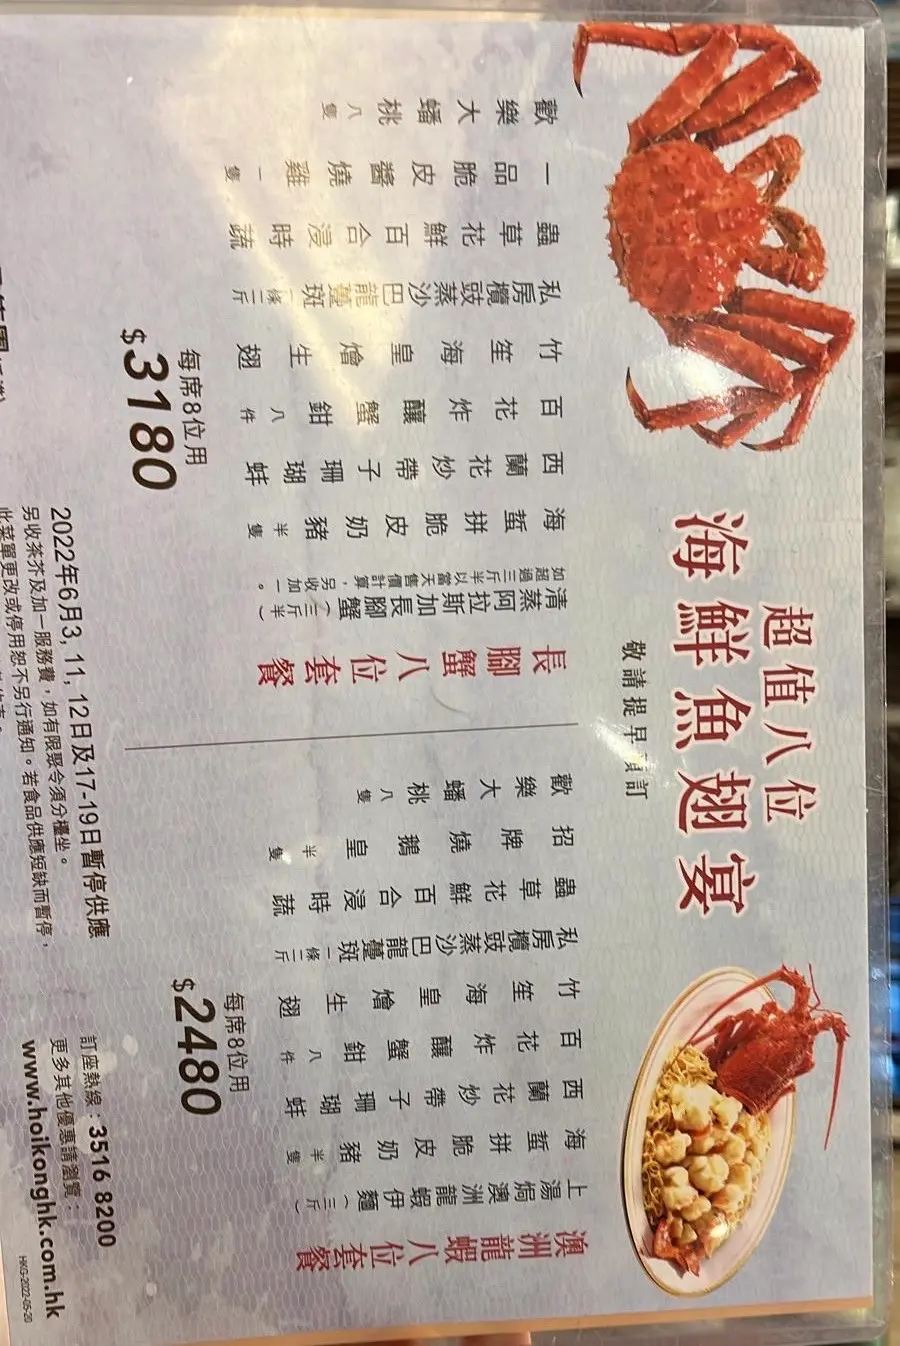 超值八位
海鮮魚翅宴
敬請提早預訂
澳洲龍蝦八位套餐
上湯焗澳洲龍蝦伊麵(三斤)
海蜇拼脆皮奶豬半隻
西蘭花炒帶子珊瑚蚌
百花炸釀蟹鉗八件
竹笙海皇燴生翅
私房欖豉蒸沙巴龍躉斑一條二斤
蟲草花鮮百合浸時蔬
招牌燒鵝皇半隻
歡樂大蟠桃八隻
每席8位用
$2480
長腳蟹八位套餐
清蒸阿拉斯加長腳蟹(三斤半)
如超過三斤半以當天售價計算，另收加一。
海蜇拼脆皮奶豬半隻
西蘭花炒帶子珊瑚蚌
百花炸釀蟹鉗八件
竹笙海皇燴生翅
私房欖豉蒸沙巴龍躉斑一條二斤
蟲草花鮮百合浸時蔬
一品脆皮醬燒雞一隻
歡樂大蟠桃八隻
每席8位用
$3180
2022年6月3, 11, 12日及17-19日暫停供應
另收茶芥及加一服務費，如有限聚令須分檯坐。
此菜單更改或停用恕不另行通知。若食品供應短缺而暫停，
訂座熱線：3516 8200
更多其他優惠請瀏覽：
www.hoikonghk.com.hk
HKG-2022-05-20